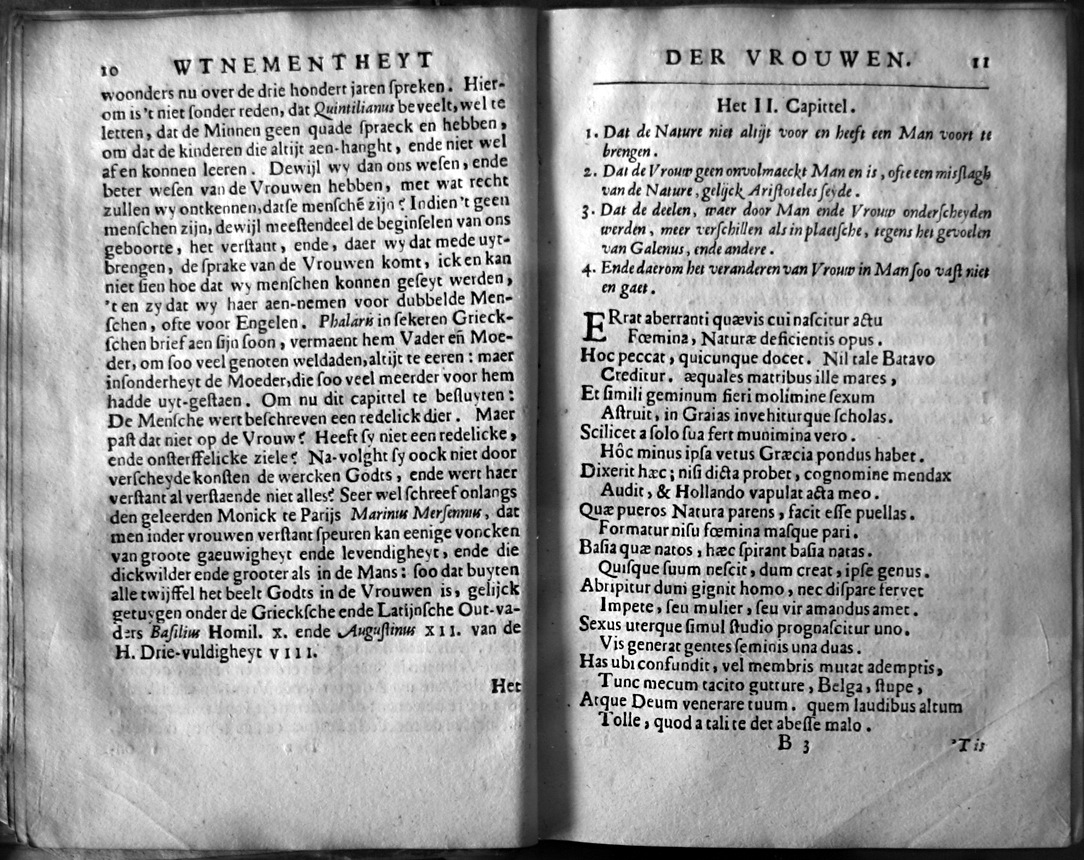 10 WTNEMENTHEYT
woonders nu over de drie hondert jaren ſpreken. Hier-
om is 't niet ſonder reden, dat Quintilianus beveelt, wel te
letten, dat de Minnen geen quade ſpraeck en hebben,
om dat de kinderen die altijt aen-hanght, ende niet wel
af en konnen leeren. Dewijl wy dan ons weſen, ende
beter weſen van de Vrouwen hebben, met wat recht
zullen wy ontkennen, datſe menſchē zijn? Indien 't geen
menſchen zijn, dewijl meeſtendeel de beginſelen van ons
geboorte, het verſtant, ende, daer wy dat mede uyt-
brengen, de ſprake van de Vrouwen komt, ick en kan
niet ſien hoe dat wy menſchen konnen geſeyt werden,
't en zy dat wy haer aen-nemen voor dubbelde Men-
ſchen, ofte voor Engelen. Phalaris in ſekeren Grieck-
ſchen brief aen ſijn ſoon, vermaent hem Vader eñ Moe-
der, om ſoo veel genoten weldaden, altijt te eeren: maer
inſonderheyt de Moeder, die ſoo veel meerder voor hem
hadde uyt-geſtaen. Om nu dit capittel te beſluyten:
De Menſche wert beſchreven een redelick dier. Maer
paſt dat niet op de Vrouw? Heeft ſy niet een redelicke,
ende onſterffelicke ziele? Na-volght ſy oock niet door
verſcheyde konſten de wercken Godts, ende wert haer
verſtant al verſtaende niet alles? Seer wel ſchreef onlangs
den geleerden Monick te Parijs Marinus Merſennus, dat
men inder vrouwen verſtant ſpeuren kan eenige voncken
van groote gaeuwigheyt ende levendigheyt, ende die
dickwilder ende grooter als in de Mans: ſoo dat buyten
alle twijffel het beelt Godts in de Vrouwen is, gelijck
getuygen onder de Grieckſche ende Latijnſche Out-va-
ders Baſilius Homil. X. ende Auguſtinus XII. van de
H. Drie-vuldigheyt VIII.
Het
DER VROUWEN. 11
Het II. Capittel.
1. Dat de Nature niet altijt voor en heeft een Man voort te
brengen.
2. Dat de Vrouw geen onvolmaeckt Man en is, ofte een misſlagh
van de Nature, gelijck Ariſtoteles ſeyde.
3. Dat de deelen, waer door Man ende Vrouw onderſcheyden
werden, meer verſchillen als in plaetſche, tegens het gevoelen
van Galenus, ende andere.
4. Ende daerom het veranderen van Vrouw in Man ſoo vaſt niet
en gaet.
ERrat aberranti quævis cui naſcitur actu
Fœmina, Naturæ deficientis opus.
Hoc peccat, quicunque docet. Nil tale Batavo
Creditur. æquales matribus ille mares,
Et ſimili geminum fieri molimine ſexum
Aſtruit, in Graias invehiturque ſcholas.
Scilicet a ſolo ſua fert munimina vero.
Hôc minus ipſa vetus Græcia pondus habet.
Dixerit hæc; niſi dicta probet, cognomine mendax
Audit, & Hollando vapulat acta meo.
Quæ pueros Natura parens, facit eſſe puellas.
Formatur niſu fœmina maſque pari.
Baſia quæ natos, hæc ſpirant baſia natas.
Quiſque ſuum neſcit, dum creat, ipſe genus.
Abripitur dum gignit homo, nec diſpare fervet
Impete, ſeu mulier, ſeu vir amandus amet.
Sexus uterque ſimul ſtudio prognaſcitur uno.
Vis generat gentes ſeminis una duas.
Has ubi confundit, vel membris mutat ademptis,
Tunc mecum tacito gutture, Belga, ſtupe,
Atque Deum venerare tuum. quem laudibus altum
Tolle, quod a tali te det abeſſe malo.
B 3 'Tis